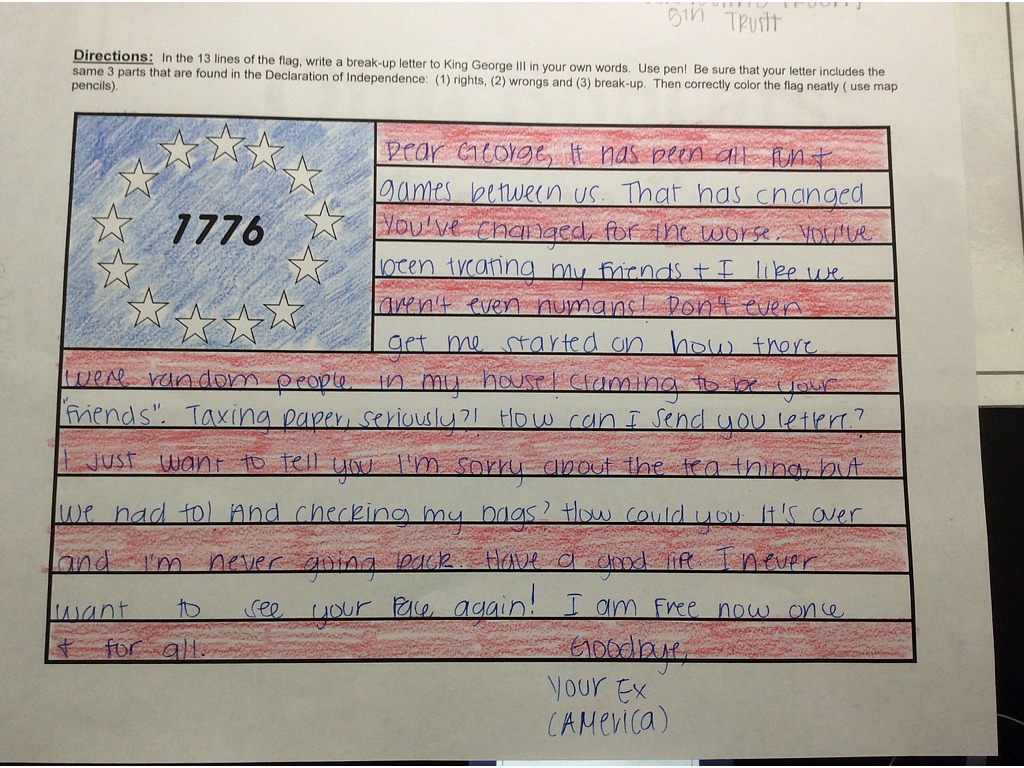 5th Truitt
Directions: In the 13 lines of the flag, write a break-up letter to King George III in your own words. Use pen! Be sure that your letter includes the
same 3 parts that are found in the Declaration of Independence: (1) rights, (2) wrongs and (3) break-up. Then correctly color the flag neatly ( use map
pencils).
1776
Dear George, It has been all fun +
games between us. That has changed
You've changed, for the worse. You've
been treating my friends + I like we
aren't even humans! Don't even
get me started on how there
were random people in my house! Claming to be your
"friends". Taxing paper, seriously?! How can I send you letters?
I just want to tell you I'm sorry about the tea thing, but
we had to! And checking my bags? How could you. It's over
and I'm never going back. Have a good life. I never
want to see your face again! I am free now once
+ for all. Goodbye,
Your Ex
(America)